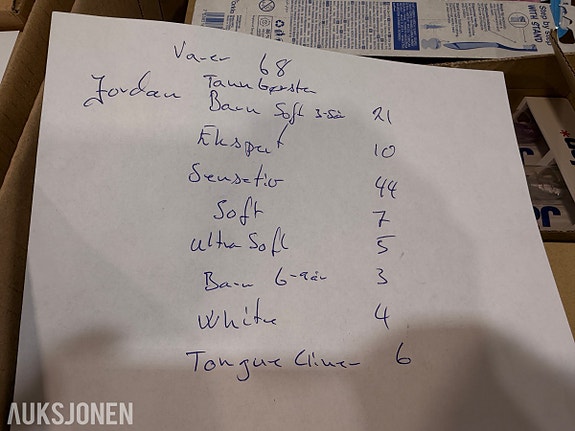 Step by step
WITH STAND
Varer 68
Jordan Tannbørster
Barn Soft 3-5år 21
Ekspert 10
Sensetiv 44
Soft 7
Ultra Soft 5
Barn 6-9år 3
White 4
Tongue Cliner 6
AUKSJONEN